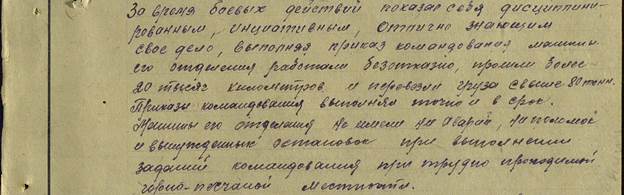 За время боевых действий показал себя дисциплини-
рованным, инициативным, отлично знающим
свое дело, выполняя приказ командования машины
его отделения работали безотказно, прошли более
20 тысяч километров и перевезли груза свыше 80 тонн.
Приказы командования выполнял точно и в срок.
Машины его отделения не имели ни аварий, ни поломок
и вынужденных остановок при выполнении
заданий командования при трудно проходимой
горно-песчаной местности.